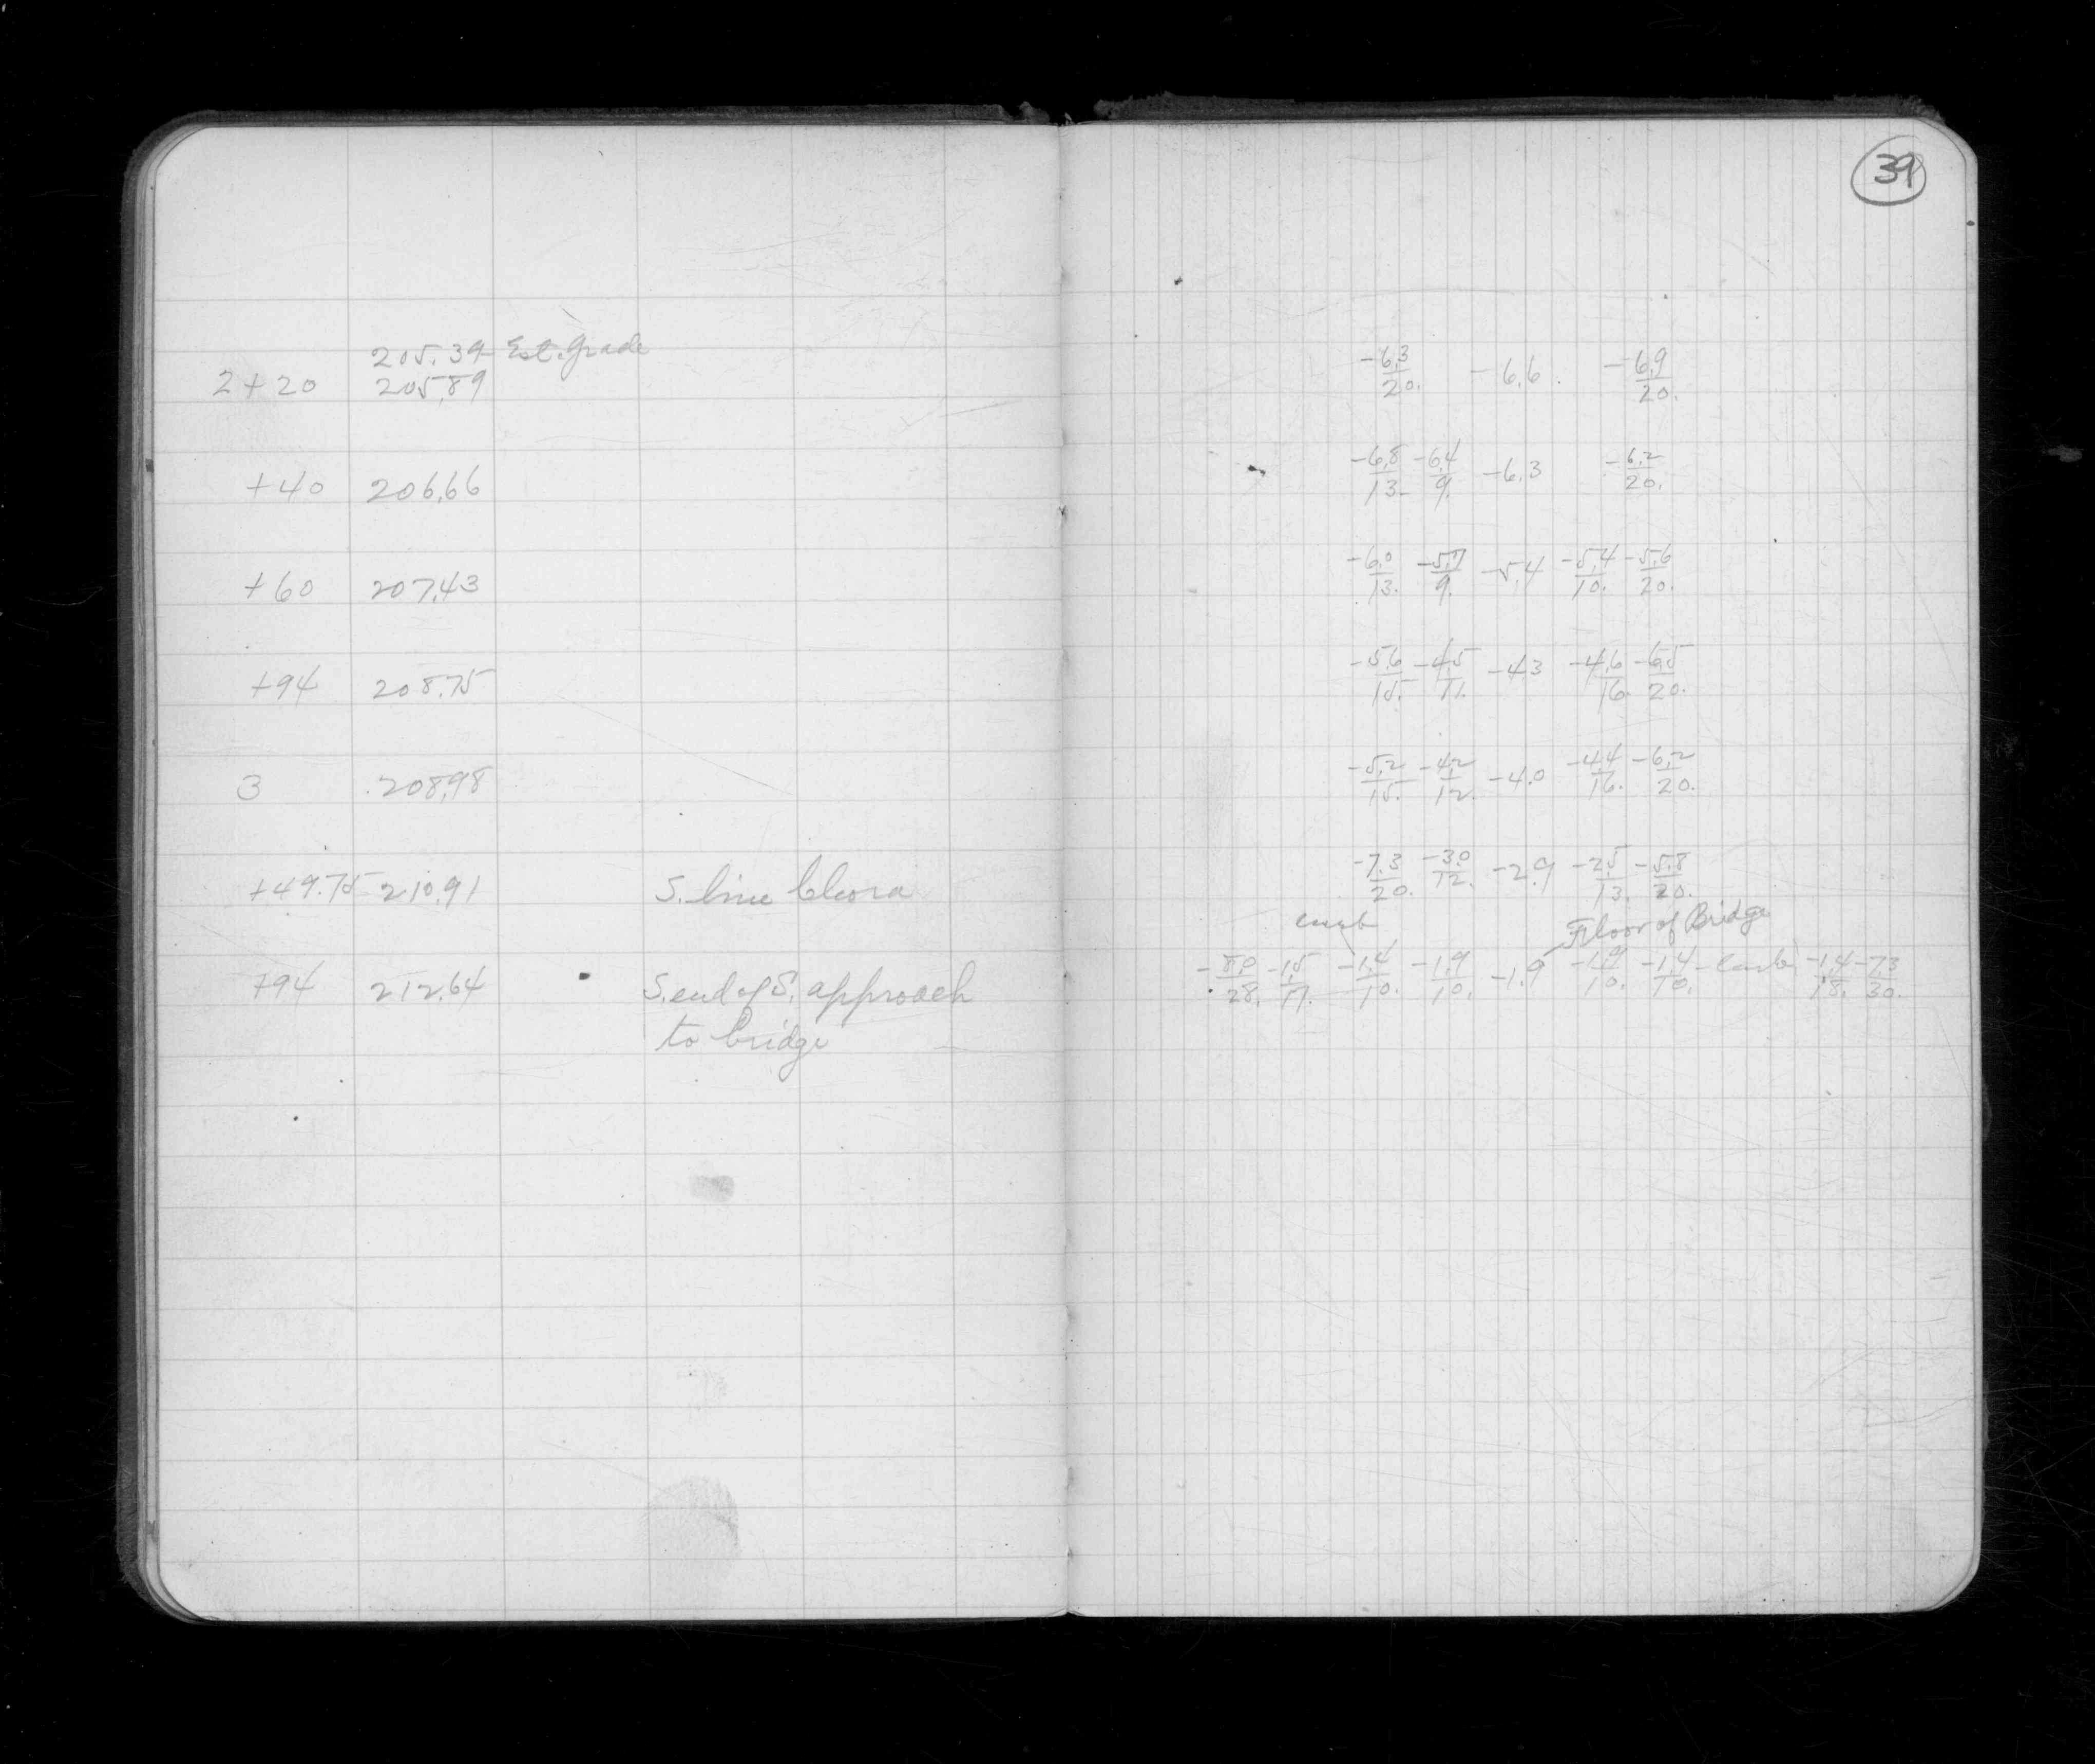 39
205.39 Est. Grade
2+20 205.89 -6.3/20. -6.6. -6.9/20.
+40 206.66 -6.8/13 -6.4/9. -6.3 -6.2/20.
+60 207.43 -6.0/13. -5.7/9. -5.4 -5.4/10. -5.6/20.
+94 208.75 -5.6/15. -4.5/11. -4.3 -4.6/16. -6.5/20.
3 208.98 -5.2/15. -4.2/12. -4.0 -4.4/16. -6.2/20.
+49.75 210.91 S. line Cleora -7.3/20. -3.0/12. -2.9 -2.5/13. -5.8/20.
curb Floor of Bridge
+94 212.64 S. end of S. approach -8.0/28. -1.5/17. -1.4/10. -1.9/10. -1.9 -1.9/10. -1.4/10. - Curb -1.4/18. -7.3/30.
to bridge